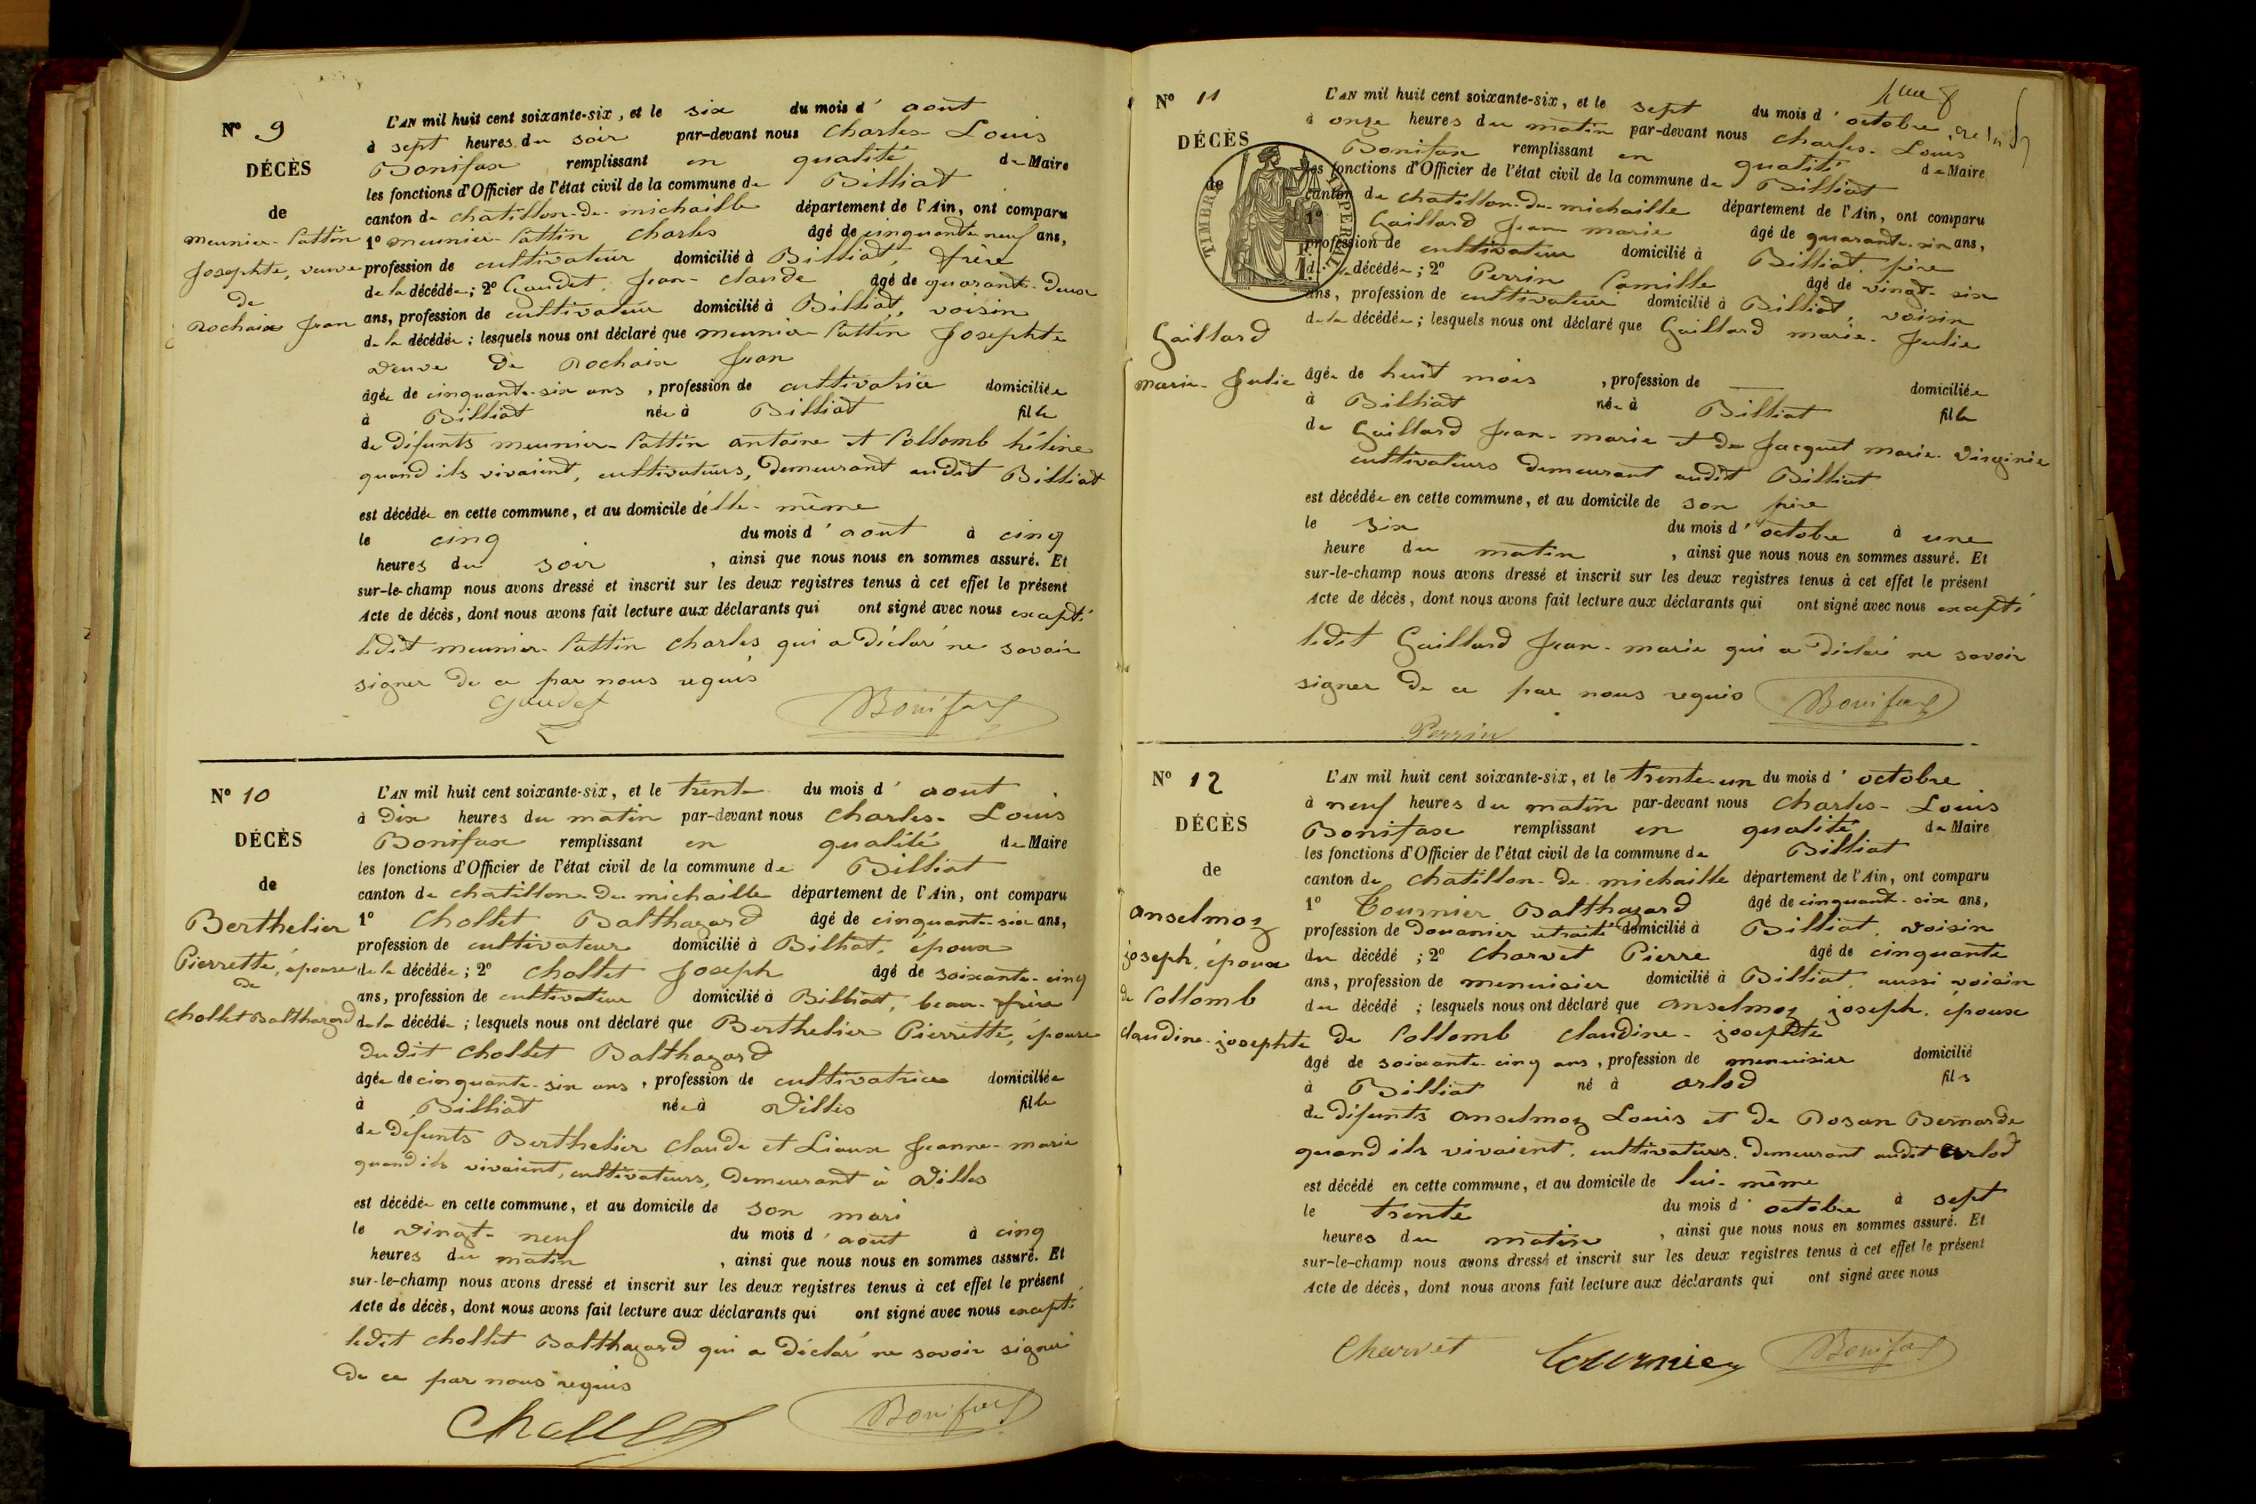 N° 9
DÉCÈS
de
meunier-Cattin
Josephte, veuve
de
Rochaix Jean
L'AN mil huit cent soixante-six, et le six du mois d'aout
à sept heures du soir par-devant nous Charles-Louis
Bonifax remplissant en qualité de Maire
les fonctions d'Officier de l'état civil de la commune de Billiat
canton de chatillon-de-michaille département de l'Ain, ont comparu
1° meunier-Cattin Charles âgé de cinquante neuf ans,
profession de cultivateur domicilié à Billiat, frère
de la décédée; 2° Gaudet, Jean-claude âgé de quarante-deux
ans, profession de cultivateur domicilié à Billiat, voisin
de la décédée; lesquels nous ont déclaré que meunier-Cattin Josephte
veuve de Rochaix Jean
âgée de cinquante-six ans, profession de cultivatrice domiciliée
à Billiat née à Billiat fille
de défunts meunier-Cattin antoine et Collomb hélène
quand ils vivaient, cultivateurs, demeurant audit Billiat
est décédée en cette commune, et au domicile d'elle-même
le cinq du mois d'aout à cinq
heures du soir, ainsi que nous nous en sommes assuré. Et
sur-le-champ nous avons dressé et inscrit sur les deux registres tenus à cet effet le présent
Acte de décès, dont nous avons fait lecture aux déclarants qui ont signé avec nous excepté
ledit meunier-Cattin Charles qui a déclaré ne savoir
signer de ce par nous requis
Gaudet Bonifax
N° 10
DÉCÈS
de
Berthelier
Pierrette, épouse
de
Chollet Balthazard
L'AN mil huit cent soixante-six, et le trente du mois d'aout
à dix heures du matin par-devant nous Charles-Louis
Bonifax remplissant en qualité de Maire
les fonctions d'Officier de l'état civil de la commune de Billiat
canton de chatillon-de-michaille département de l'Ain, ont comparu
1° Chollet Balthazard âgé de cinquante-six ans,
profession de cultivateur domicilié à Billiat, époux
de la décédée; 2° Chollet Joseph âgé de soixante-cinq
ans, profession de cultivateur domicilié à Billiat, beau-frère
de la décédée; lesquels nous ont déclaré que Berthelier Pierrette, épouse
dudit Chollet Balthazard
âgée de cinquante-six ans, profession de cultivatrice domiciliée
à Billiat née à Villes fille
de défunts Berthelier Claude et Liaux Jeanne-marie
quand ils vivaient, cultivateurs, demeurant à Villes
est décédée en cette commune, et au domicile de son mari
le vingt-neuf du mois d'aout à cinq
heures du matin, ainsi que nous nous en sommes assuré. Et
sur-le-champ nous avons dressé et inscrit sur les deux registres tenus à cet effet le présent
Acte de décès, dont nous avons fait lecture aux déclarants qui ont signé avec nous excepté
ledit Chollet Balthazard qui a déclaré ne savoir signer
de ce par nous requis
Chollet Bonifax
N° 11
DÉCÈS
de
TIMBRE IMPÉRIAL
Gaillard
marie-Julie
L'AN mil huit cent soixante-six, et le sept du mois d'octobre
à onze heures du matin par-devant nous Charles-Louis
Bonifax remplissant en qualité de Maire
les fonctions d'Officier de l'état civil de la commune de Billiat
canton de chatillon-de-michaille département de l'Ain, ont comparu
1° Gaillard Jean marie âgé de quarante-six ans,
profession de cultivateur domicilié à Billiat, père
de la décédée; 2° Perrin Camille âgé de vingt-six
ans, profession de cultivateur domicilié à Billiat, voisin
de la décédée; lesquels nous ont déclaré que Gaillard marie-Julie
âgée de huit mois, profession de — domiciliée
à Billiat née à Billiat fille
de Gaillard Jean-marie et de Jacquet marie-Virginie
cultivateurs demeurant audit Billiat
est décédée en cette commune, et au domicile de son père
le six du mois d'octobre à une
heure du matin, ainsi que nous nous en sommes assuré. Et
sur-le-champ nous avons dressé et inscrit sur les deux registres tenus à cet effet le présent
Acte de décès, dont nous avons fait lecture aux déclarants qui ont signé avec nous excepté
ledit Gaillard Jean-marie qui a déclaré ne savoir
signer de ce par nous requis Bonifax
Perrin
N° 12
DÉCÈS
de
anselmoz
joseph, époux
de Collomb
claudine-josephte
L'AN mil huit cent soixante-six, et le trente-un du mois d'octobre
à neuf heures du matin par-devant nous Charles-Louis
Bonifax remplissant en qualité de Maire
les fonctions d'Officier de l'état civil de la commune de Billiat
canton de Chatillon-de-michaille département de l'Ain, ont comparu
1° Tournier Balthazard âgé de cinquante-six ans,
profession de Douanier retraité domicilié à Billiat, voisin
du décédé; 2° Charvet Pierre âgé de cinquante
ans, profession de menuisier domicilié à Billiat, aussi voisin
du décédé; lesquels nous ont déclaré que anselmoz joseph, époux
de Collomb Claudine-josephte
âgé de soixante-cinq ans, profession de menuisier domicilié
à Billiat né à arlod fils
de défunts anselmoz Louis et de Rosan Bernarde
quand ils vivaient, cultivateurs, demeurant audit arlod
est décédé en cette commune, et au domicile de lui-même
le trente du mois d'octobre à sept
heures du matin, ainsi que nous nous en sommes assuré. Et
sur-le-champ nous avons dressé et inscrit sur les deux registres tenus à cet effet le présent
Acte de décès, dont nous avons fait lecture aux déclarants qui ont signé avec nous
Charvet Tournier Bonifax